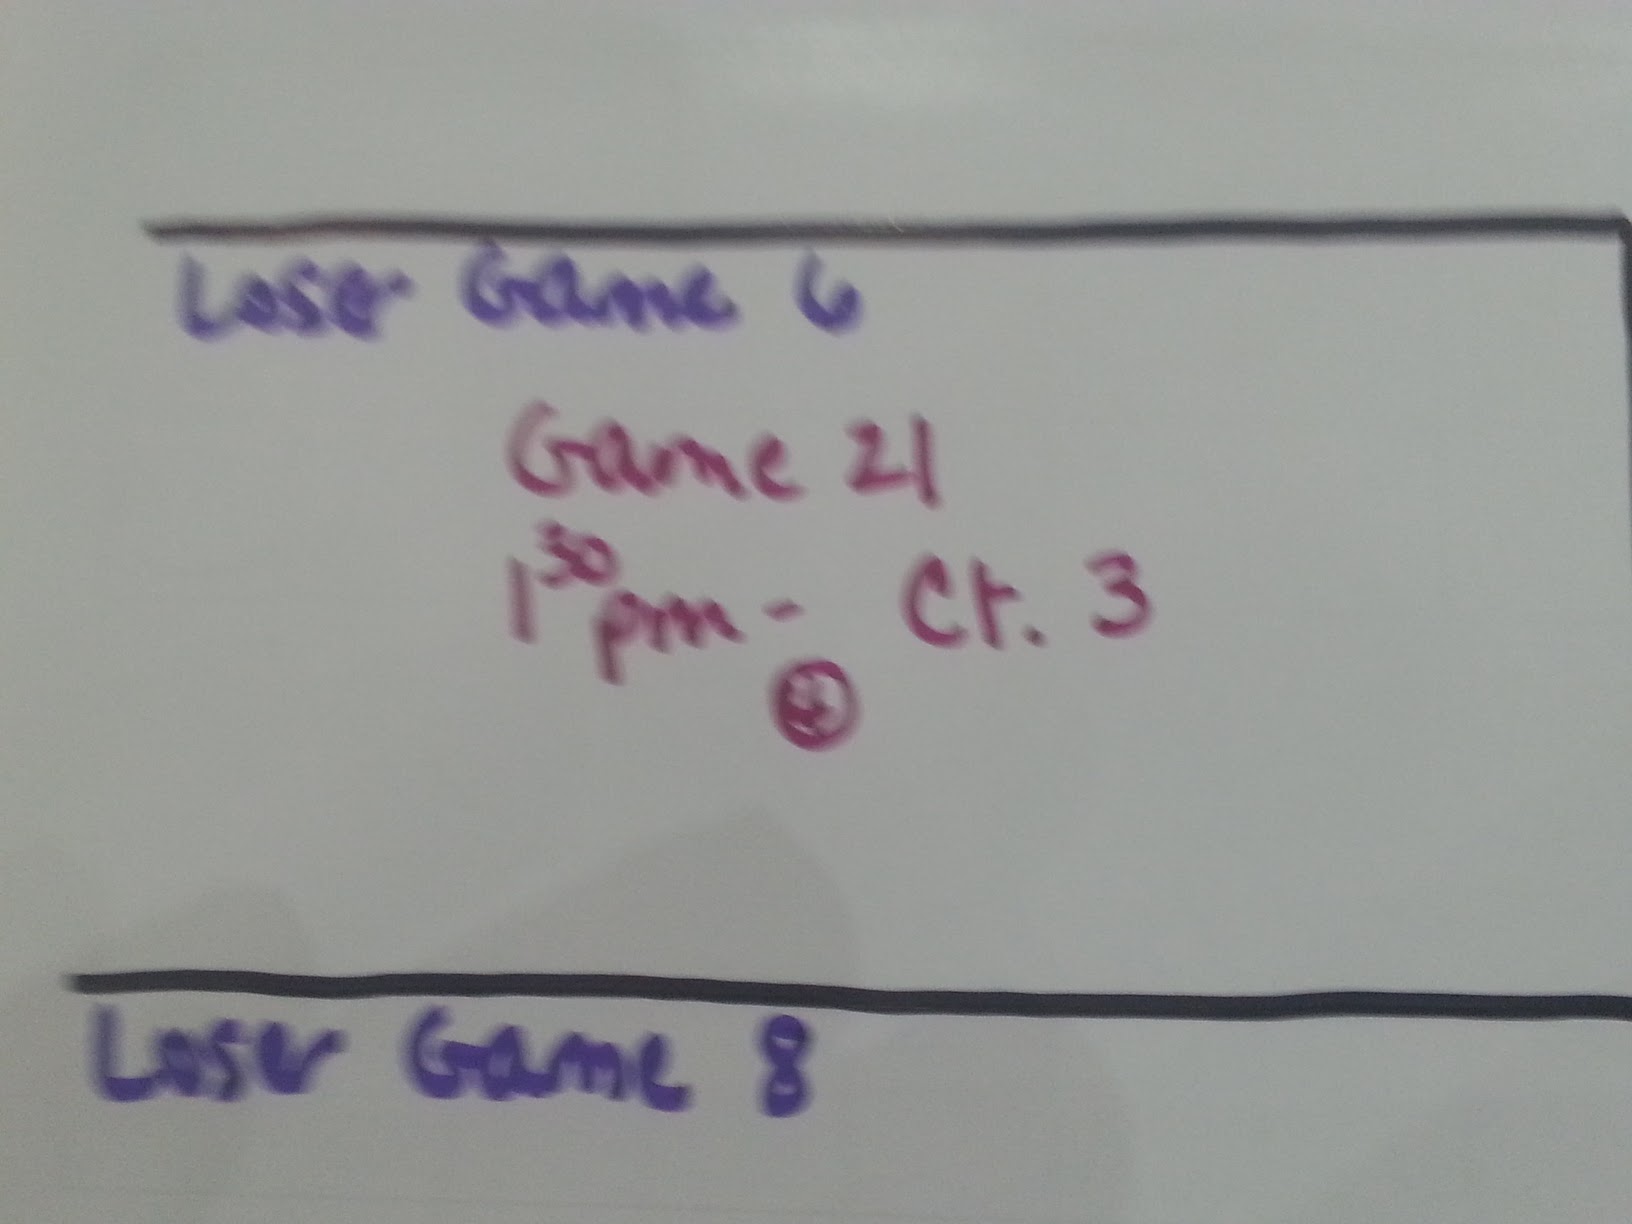 Loser Game 6
Game 21
1³⁰ pm - Ct. 3
Loser Game 8